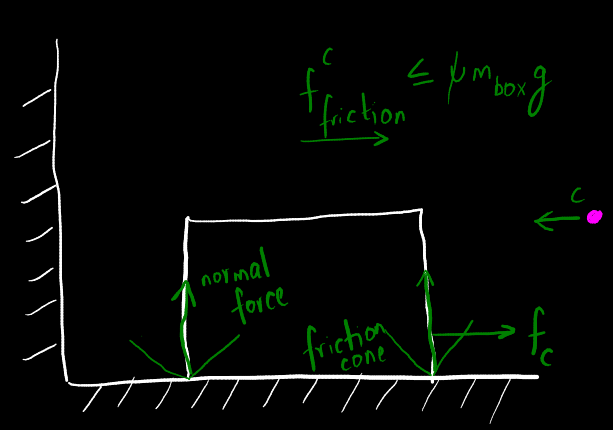 f^c_friction ≤ μ m_box g
c
normal
force
friction
cone
f_c